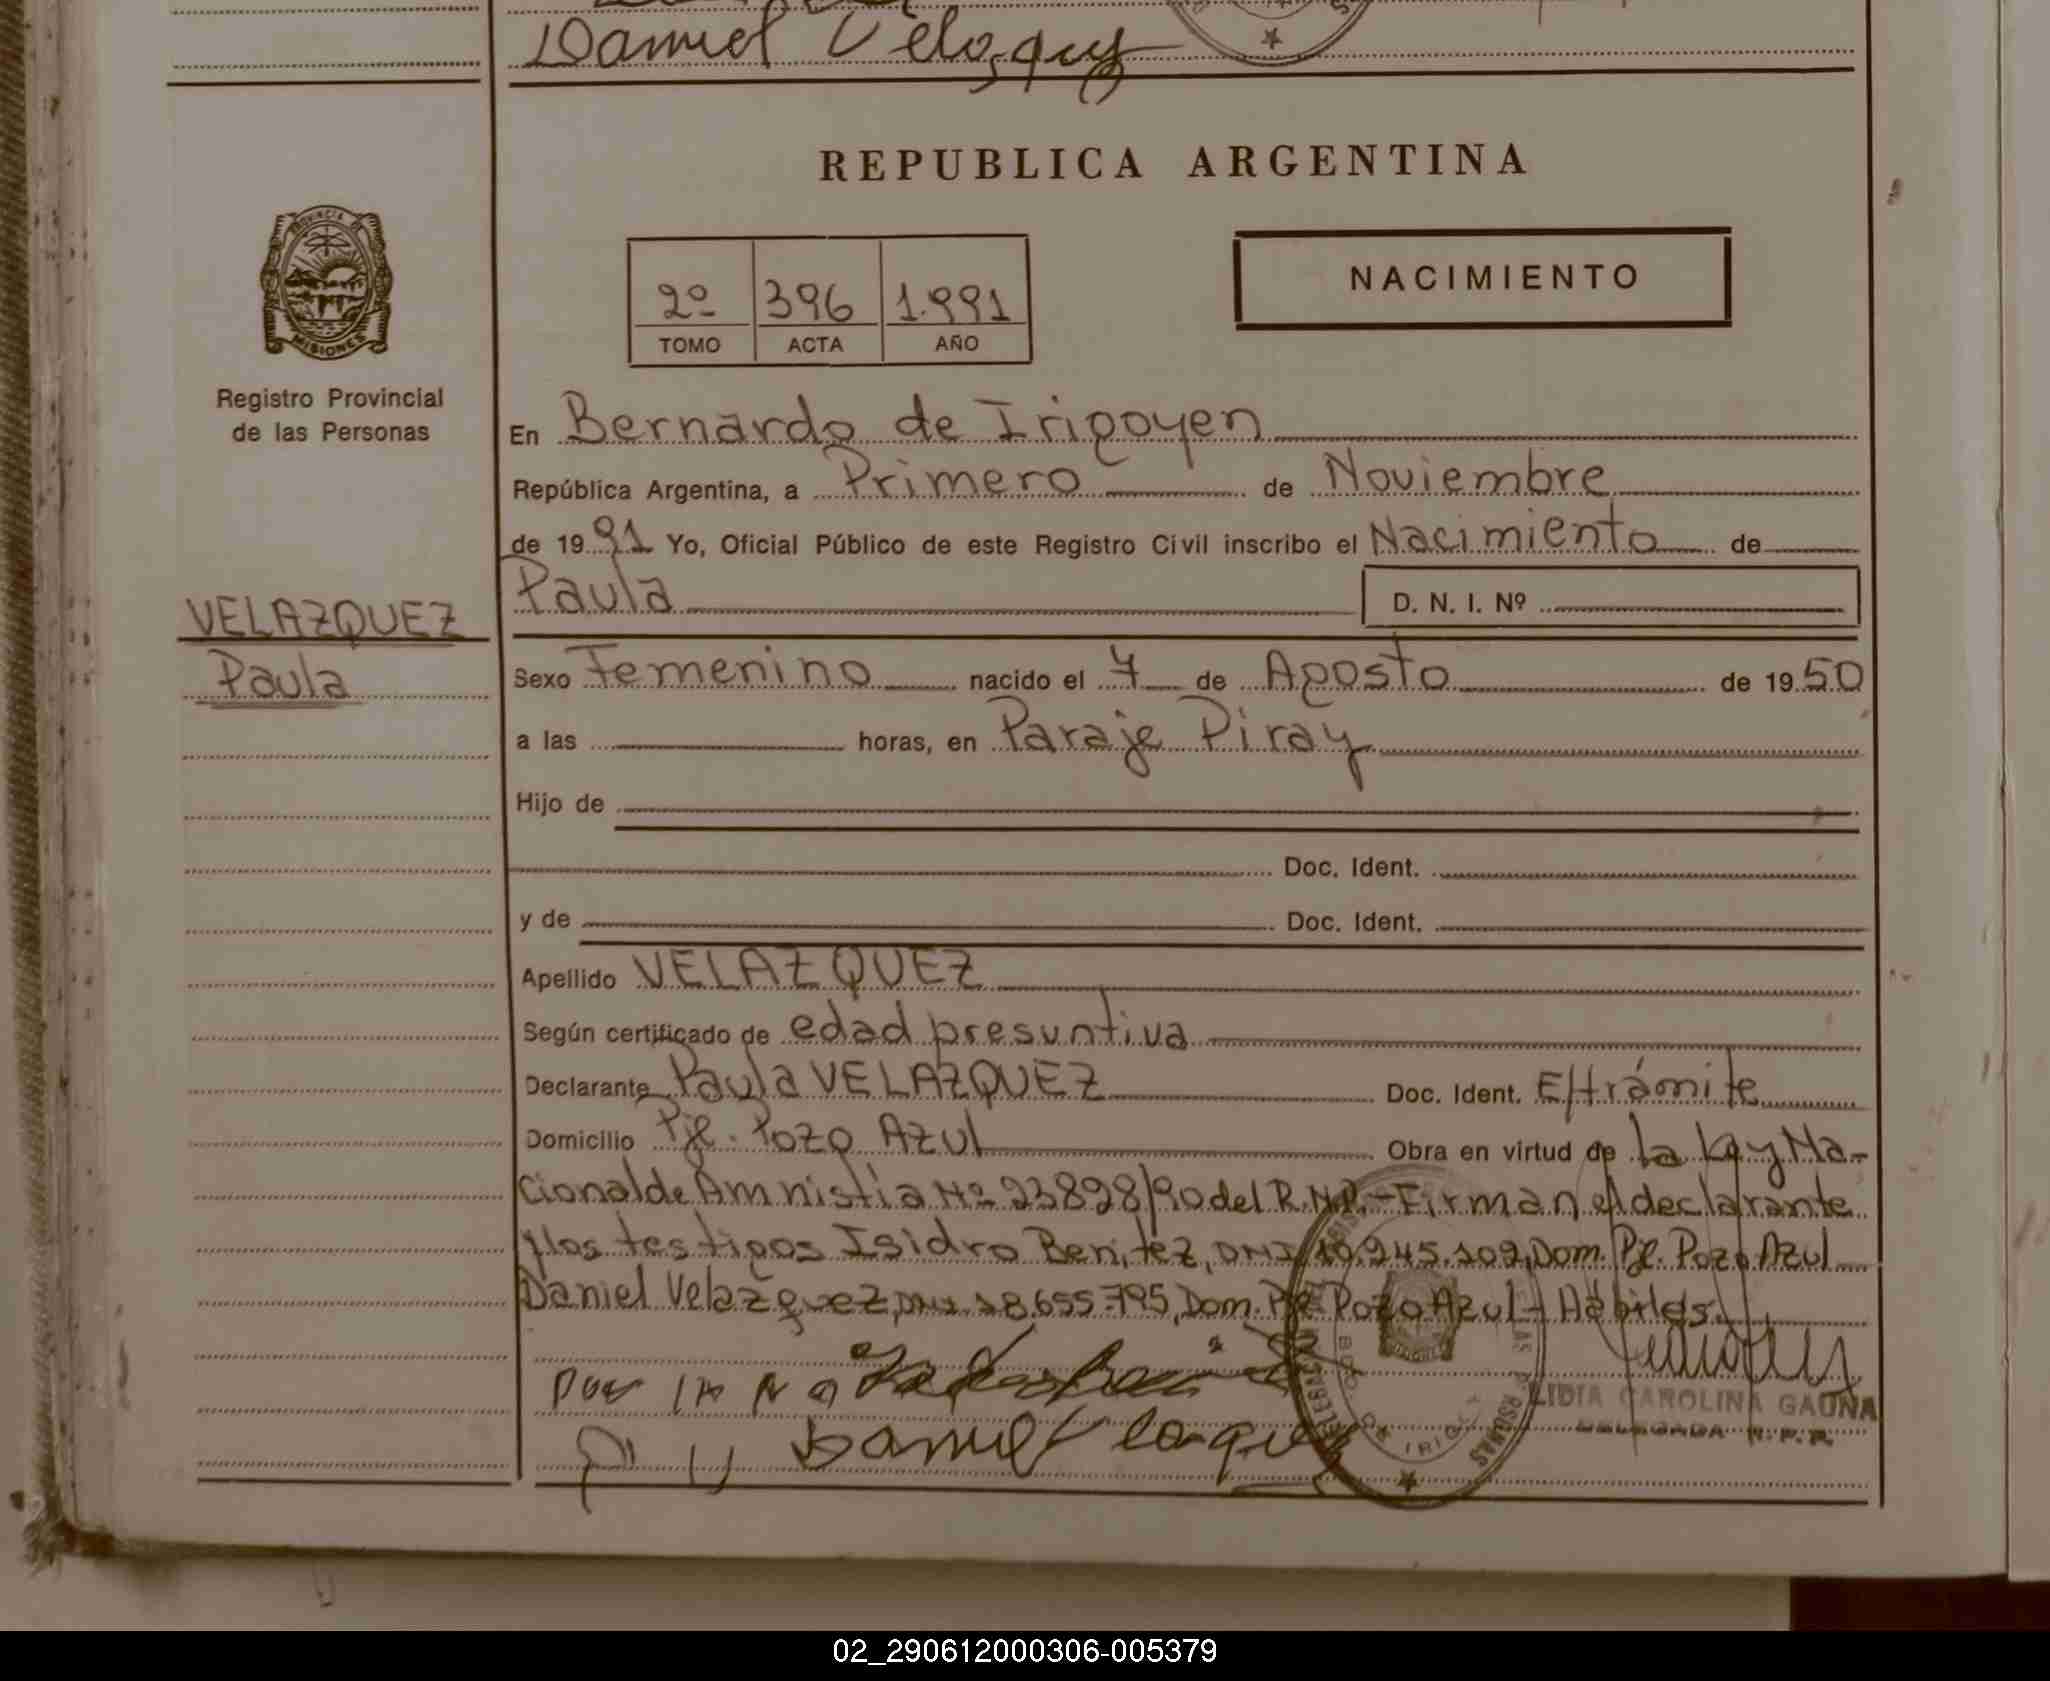 Daniel Velazquez
REPUBLICA ARGENTINA
PROVINCIA DE
MISIONES
Registro Provincial
de las Personas
2º 396 1.991
TOMO ACTA AÑO
NACIMIENTO
En Bernardo de Irigoyen
República Argentina, a Primero de Noviembre
de 1991 Yo, Oficial Público de este Registro Civil inscribo el Nacimiento de
Paula D. N. I. Nº
VELAZQUEZ
Paula
Sexo Femenino nacido el 7 de Agosto de 1950
a las horas, en Paraje Piray
Hijo de
Doc. Ident.
y de Doc. Ident.
Apellido VELAZQUEZ
Según certificado de edad presuntiva
Declarante Paula VELAZQUEZ Doc. Ident. E/trámite
Domicilio Pje. Pozo Azul Obra en virtud de la Ley Na-
cional de Amnistía Nº 23828/90 del R.N.P.- Firman el declarante
y los testigos Isidro Benitez, DNI 10.245.109, Dom. Pje. Pozo Azul
Daniel Velazquez, DNI 18.655.795, Dom. Pje. Pozo Azul - Hábiles.
Daniel Velazquez
LIDIA CAROLINA GAUNA
DELEGADA R.P.P.
02_290612000306-005379